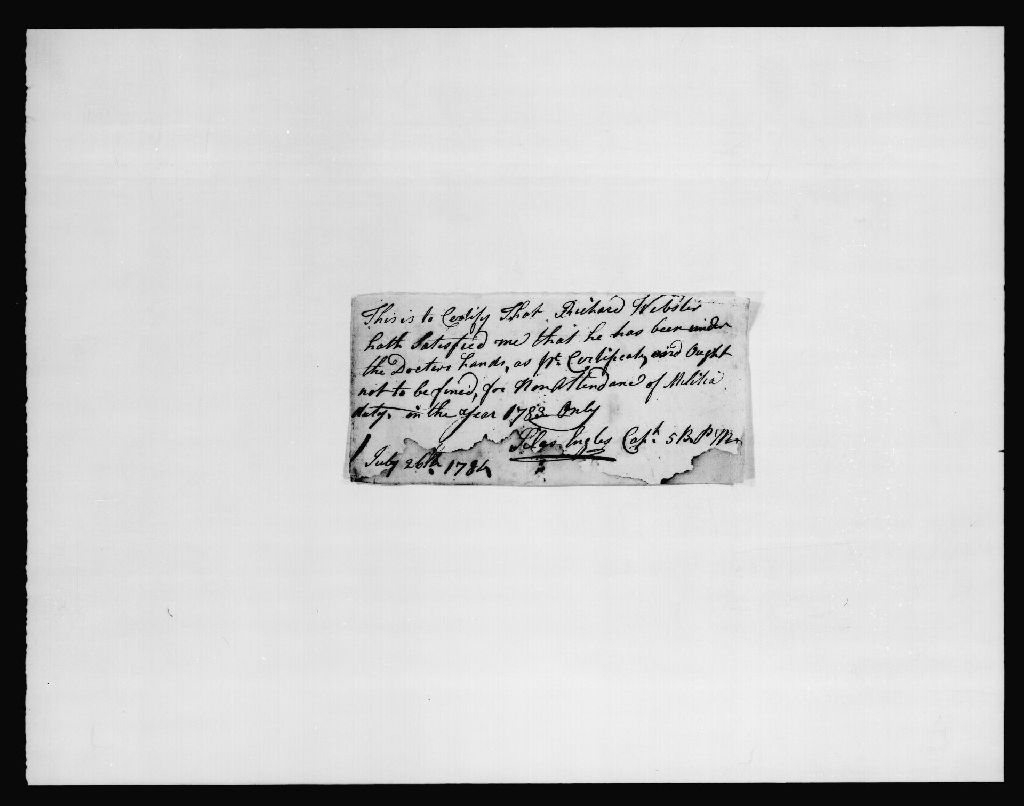 This is to Certify That Richard Webster
hath Satisfied me that he has been under
the Doctors hands, as pr. Certificate, and Ought
not to be fined, for Non Attendance of Militia
duty, in the Year 1783 Only
Silas Engles Capt. 5 B. P. M.
July 26th 1784